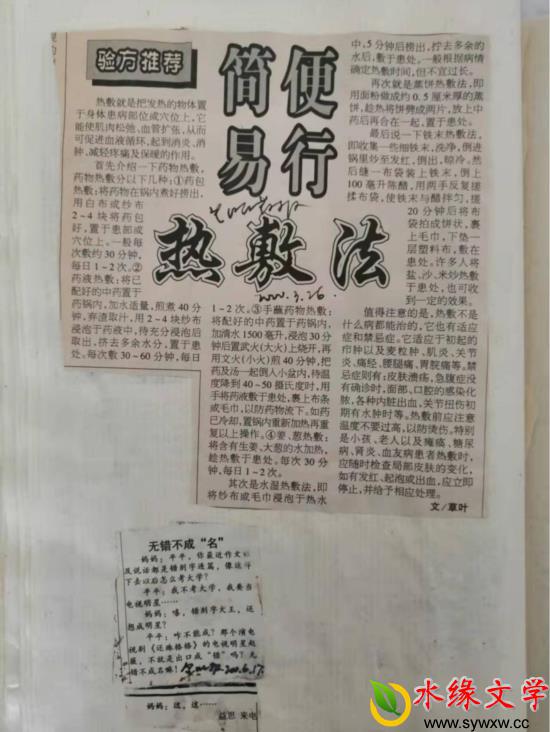 验方推荐
简便
易行
热敷法
2000.3.26.
热敷就是把发热的物体置
于身体患病部位或穴位上，它
能使肌肉松弛，血管扩张，从而
可促进血液循环，起到消炎、消
肿、减轻疼痛及保暖的作用。
首先介绍一下药物热敷，
药物热敷分以下几种：①药包
热敷：将药物在锅内煮好捞出，
用白布或纱布
2～4块将药包
好，置于患部或
穴位上。一般每
次敷约30分钟，
每日1～2次。②
药液热敷：将已
配好的中药置于
药锅内，加水适量，煎煮40分
钟，弃渣取汁，用2～4块纱布
浸泡于药液中，待充分浸泡后
取出，挤去多余水分，置于患
处。每次敷30～60分钟，每日
1～2次。③手蘸药物热敷：
将配好的中药置于药锅内，
加清水1500毫升，浸泡30分
钟后置武火(大火)上烧开，再
用文火(小火)煎40分钟，把
药及汤一起倒入小盆内，待温
度降到40～50摄氏度时，用
手将药液敷于患处，裹上布条
或毛巾，以防药物流下。如药
已冷却，置锅内重新加热再重
复以上操作。④姜、葱热敷：
将含有生姜、大葱的水加热，
趁热敷于患处。每次30分
钟，每日1～2次。
其次是水湿热敷法，即
将纱布或毛巾浸泡于热水
中，5分钟后捞出，拧去多余的
水后，敷于患处。一般根据病情
确定热敷时间，但不宜过长。
再次就是蒸饼热敷法，即
用面粉做成约0.5厘米厚的蒸
饼，趁热将饼劈成两片，放上中
药后再合在一起，置于患处。
最后说一下铁末热敷法，
即收集一些细铁末，洗净，倒进
锅里炒至发红，倒出，晾冷。然
后缝一布袋装上铁末，倒上
100毫升陈醋，用两手反复搓
揉布袋，使铁末与醋拌匀，搓
20分钟后将布
袋拍成饼状，裹
上毛巾，下垫一
层塑料布，敷在
患处。许多人将
盐、沙、米炒热敷
于患处，也可收
到一定的效果。
值得注意的是，热敷不是
什么病都能治的，它也有适应
症和禁忌症。它适应于初起的
疖肿以及麦粒肿、肌炎、关节
炎、痛经、腰腿痛、胃脘痛等。禁
忌症则有：皮肤溃疡，急腹症没
有确诊时，面部、口腔的感染化
脓，各种内脏出血，关节扭伤初
期有水肿时等。热敷前应注意
温度不要过高，以防烫伤，特别
是小孩、老人以及瘫痪、糖尿
病、肾炎、血友病患者热敷时，
应随时检查局部皮肤的变化，
如有发红、起泡或出血，应立即
停止，并给予相应处理。
文/草叶
无错不成“名”
妈妈：平平，你最近作文以
及说话都是错别字连篇，像这样
下去以后怎么考大学？
平平：我不考大学，我要当
电视明星……
妈妈：嘻，错别字大王，还
想成明星？
平平：咋不能成？那个演电
视剧《还珠格格》的电视明星赵
薇，不就是出口成“错”吗？无
错不成名嘛！
妈妈：这，这……
益思 来电
水缘文学
www.sywxw.cc